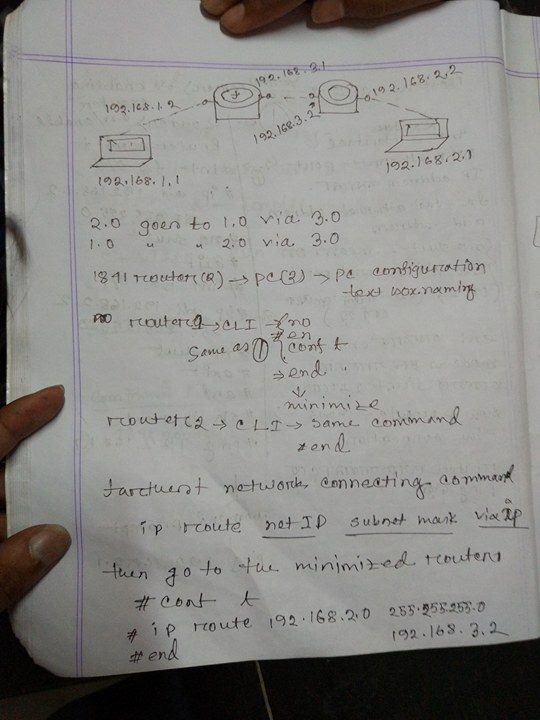 192.168.3.1
192.168.1.2
192.168.2.2
192.168.3.2
192.168.1.1
192.168.2.1
2.0 goes to 1.0 via 3.0
1.0 " " 2.0 via 3.0
1841 router(2) → PC(2) → PC configuration
text box.naming
router1 → CLI → no
# en
same as ① conf t
→ end "
↓
minimize
router2 → CLI → same command
# end
network connecting command
ip route net ID subnet mask via IP
then go to the minimized router1
# conf t
# ip route 192.168.2.0 255.255.255.0
192.168.3.2
# end